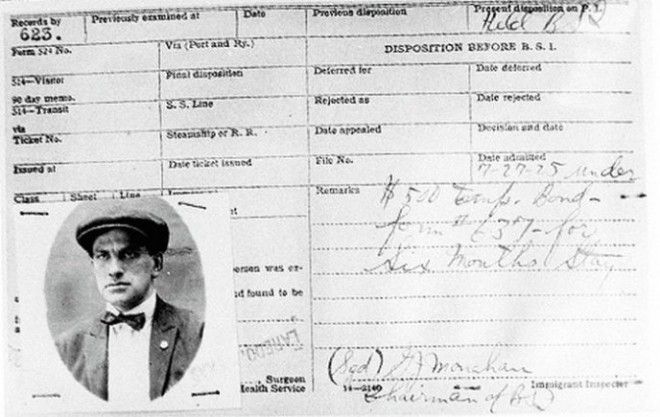 Records by
623.
Previously examined at
Date
Previous disposition
Present disposition on P. I.
Held
Form 524 No.
Via (Port and Ry.)
DISPOSITION BEFORE B. S. I.
514—Visitor
Final disposition
Deferred for
Date deferred
90 day memo.
514—Transit
S. S. Line
Rejected as
Date rejected
via
Ticket No.
Steamship or R. R.
Date appealed
Decision and date
Issued at
Date ticket issued
File No.
Date admitted
7-27-25 under
Class
Sheet
Line
Remarks
$500 Temp. Bond—
form for
six Months Stay
erson was ex-
d found to be
LAREDO
, Surgeon
Health Service
(Sgd) Monahan
14—2140
Immigrant Inspector
Chairman of